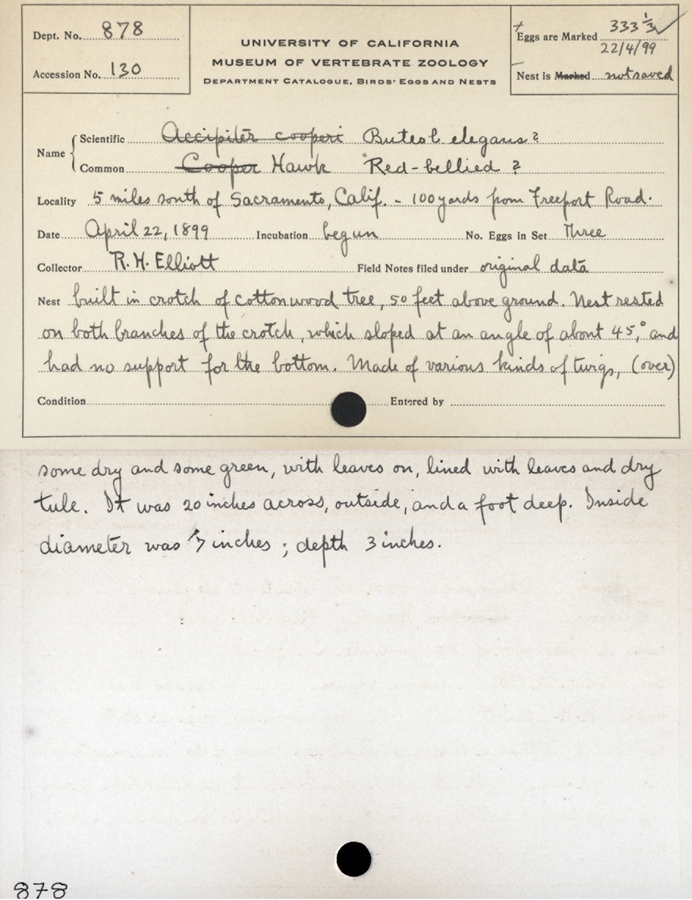 Dept. No. 878
Accession No. 130
UNIVERSITY OF CALIFORNIA
MUSEUM OF VERTEBRATE ZOOLOGY
DEPARTMENT CATALOGUE, BIRDS' EGGS AND NESTS
Eggs are Marked 333 1/3
22/4/99
Nest is Marked not saved
Name
Scientific Accipiter cooperi Buteo l. elegans?
Common Cooper Hawk Red-bellied ?
Locality 5 miles south of Sacramento, Calif. - 100 yards from Freeport Road.
Date April 22, 1899 Incubation begun No. Eggs in Set Three
Collector R. H. Elliott Field Notes filed under original data
Nest built in crotch of cottonwood tree, 50 feet above ground. Nest rested
on both branches of the crotch, which sloped at an angle of about 45°, and
had no support for the bottom. Made of various kinds of twigs, (over)
Condition Entered by
some dry and some green, with leaves on, lined with leaves and dry
tule. It was 20 inches across, outside, and a foot deep. Inside
diameter was 7 inches; depth 3 inches.
878